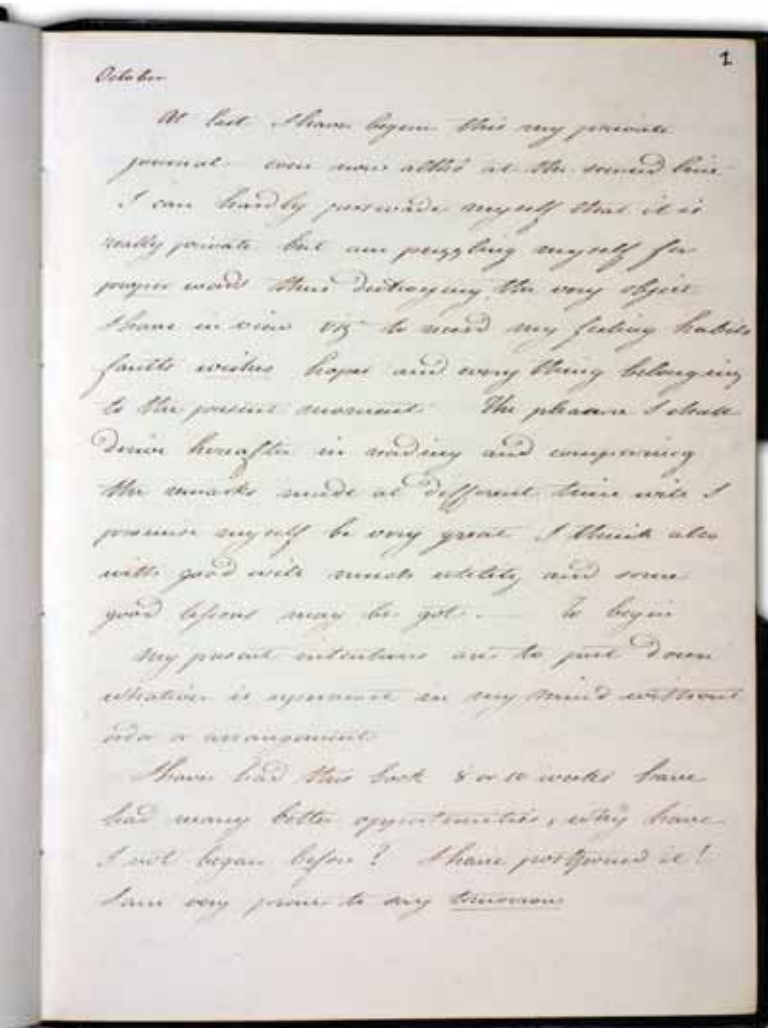 1
October
At last I have begun this my private
journal - even now altho' at the second line
I can hardly persuade myself that it is
really private but am puzzling myself for
proper words thus destroying the very object
I have in view viz to record my feeling habits
faults wishes hopes and every thing belonging
to the present moment. The pleasure I shall
derive hereafter in reading and comparing
the remarks made at different time will I
promise myself be very great I think also
with good will much utility and some
good lessons may be got. — To begin
My present intentions are to put down
whatever is uppermost in my mind without
order or arrangement.
I have had this book 8 or 10 weeks have
had many better opportunities, why have
I not began before? I have postponed it!
I am very prone to say tomorrow